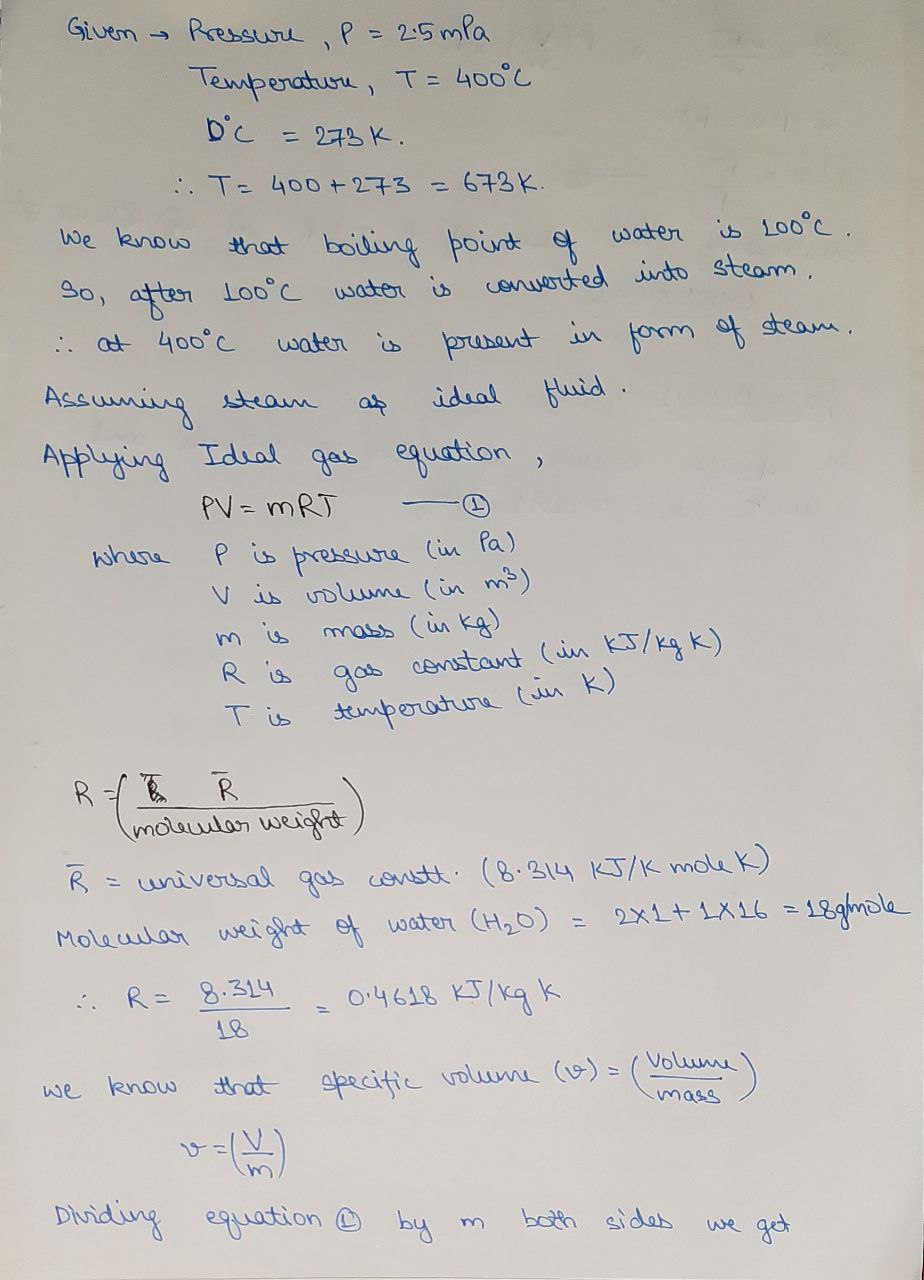 Given → Pressure, P = 2.5 mPa
Temperature, T = 400°C
0°C = 273 K.
∴ T = 400 + 273 = 673 K.
We know that boiling point of water is 100°C.
So, after 100°C water is converted into steam.
∴ at 400°C water is present in form of steam.
Assuming steam as ideal fluid.
Applying Ideal gas equation,
PV = mRT —— ①
where P is pressure (in Pa)
V is volume (in m³)
m is mass (in kg)
R is gas constant (in KJ/kg K)
T is temperature (in K)
R = ( R̄ / molecular weight )
R̄ = universal gas constt. (8.314 KJ/K mole K)
Molecular weight of water (H₂O) = 2×1 + 1×16 = 18g/mole
∴ R = 8.314 / 18 = 0.4618 KJ/kg K
we know that specific volume (v) = ( Volume / mass )
v = ( V / m )
Dividing equation ① by m both sides we get